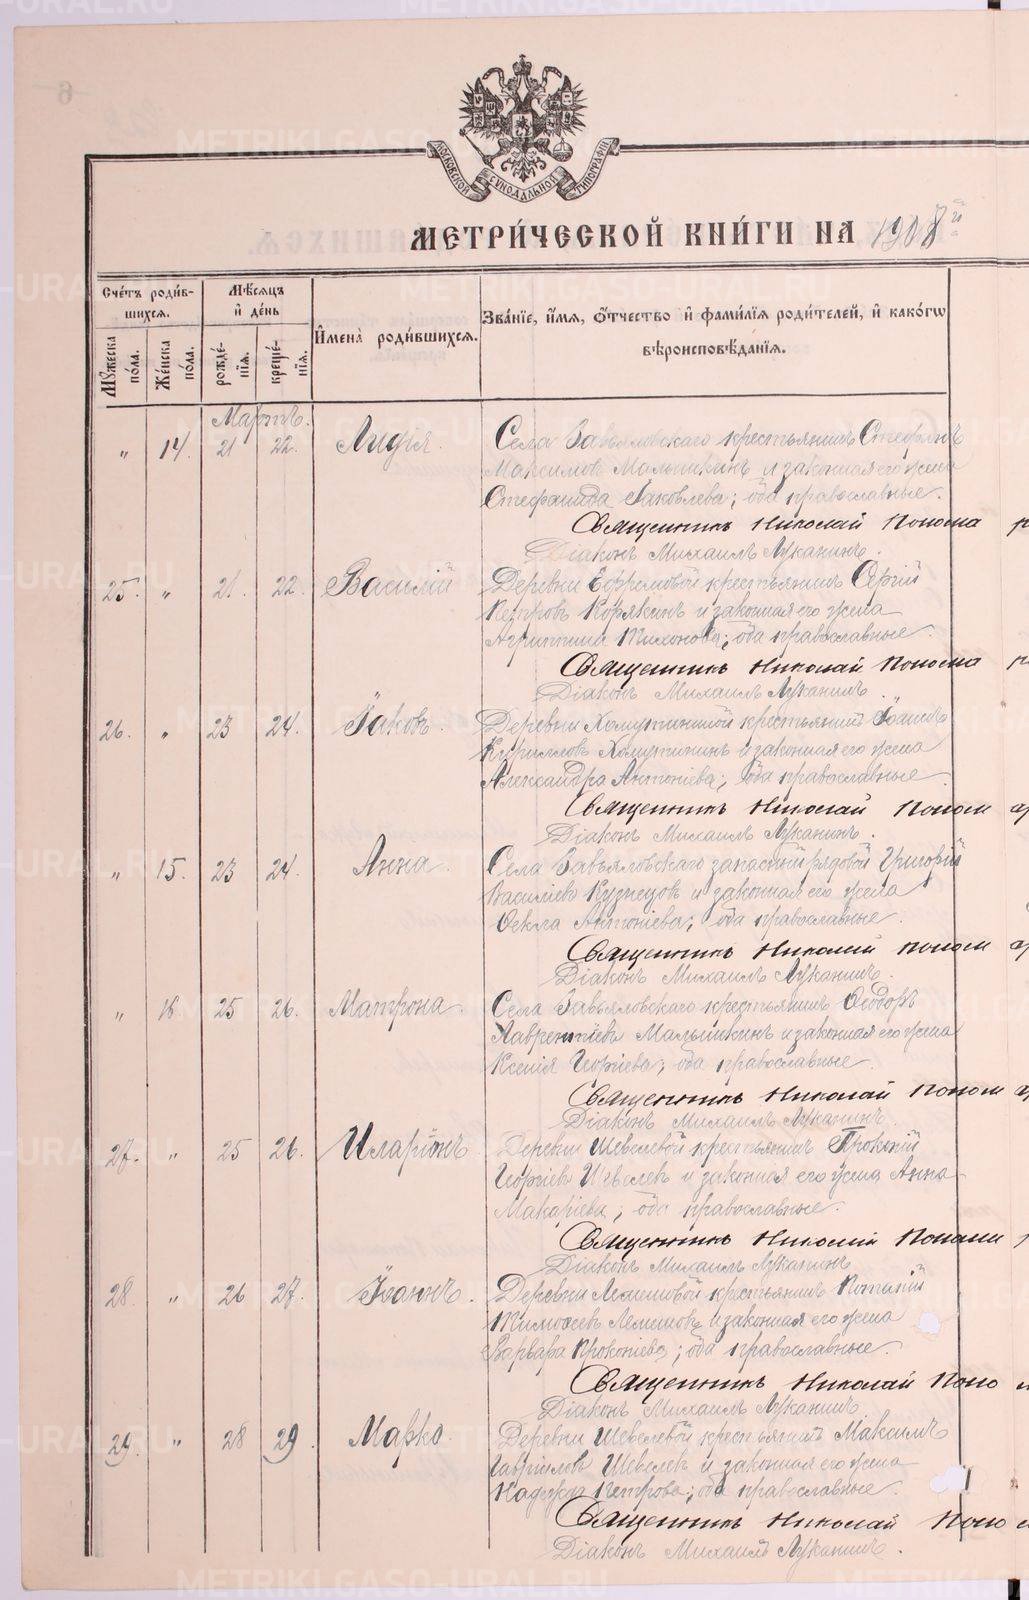 МОСКОВСКОЙ СѴНОДАЛЬНОЙ ТИПОГРАФІИ
МЕТРИ́ЧЕСКОЙ КНИ́ГИ НА 1908 й
Сче́тъ роди́в-
шихсѧ.
Мѣсѧцъ
и҆ де́нь
И҆мена̀ роди́вшихсѧ.
Зва́нїе, и҆́мѧ, ѻ҆́тчество и҆ фами́лїѧ роди́телей, и҆ како́гѡ
вѣроисповѣ́данїѧ.
Мꙋ́жеска по́ла.
Же́нска по́ла.
рожде́нїѧ.
креще́нїѧ.
Мартъ.
" 14. 21 22. Лидія. Села Завьяловскаго крестьянинъ Стефанъ
Максимовъ Малышкинъ и законная его жена
Стефанида Іаковлева; оба православные.
Священникъ Николай Понома
Діаконъ Михаилъ Луканинъ.
25. " 21. 22. Василій Деревни Ефремовой крестьянинъ Сергій
Петровъ Корякинъ и законная его жена
Агриппина Тихонова; оба православные.
Священникъ Николай Понома
Діаконъ Михаилъ Луканинъ.
26. " 23 24. Іаковъ. Деревни Хомутининой крестьянинъ Іоаннъ
Кирилловъ Хомутининъ и законная его жена
Александра Антоніева; оба православные
Священникъ Николай Поном
Діаконъ Михаилъ Луканинъ.
" 15. 23 24. Анна. Села Завьяловскаго запасный рядовой Григорій
Василіевъ Кузнецовъ и законная его жена
Ѳекла Антоніева; оба православные.
Священникъ Николай Поном
Діаконъ Михаилъ Луканинъ.
" 16. 25 26. Матрона. Села Завьяловскаго крестьянинъ Ѳеодоръ
Лаврентіевъ Малышкинъ и законная его жена
Ксенія Георгіева; оба православные.
Священникъ Николай Поном
Діаконъ Михаилъ Луканинъ.
27. " 25 26. Иларіонъ. Деревни Шевелевой крестьянинъ Прокпій
Георгіевъ Шевелевъ и законная его жена Анна
Макаріева; оба православные.
Священникъ Николай Понома
Діаконъ Михаилъ Луканинъ
28. " 26 27. Іоаннъ. Деревни Лемешовой крестьянинъ Потапій
Тимоѳеевъ Лемешовъ и законная его жена
Варвара Прокопіева; оба православные.
Священникъ Николай Поно
Діаконъ Михаилъ Луканинъ.
29. " 28 29. Марко. Деревни Шевелевой крестьянинъ Максимъ
Гавріиловъ Шевелевъ и законная его жена
Надежда Петрова; оба православные.
Священникъ Николай Поно
Діаконъ Михаилъ Луканинъ.
METRIKI.GASO-URAL.RU